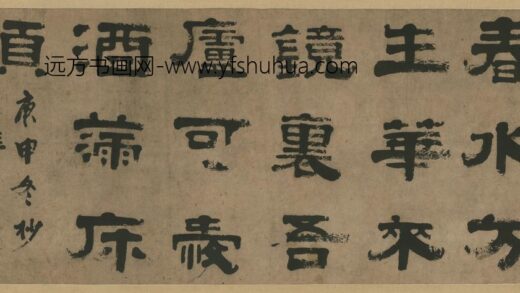 春水方
生華來
鏡裏吾
廬可愛
酒滿床
頭
庚申冬杪
远方书画网-www.yfshuhua.com